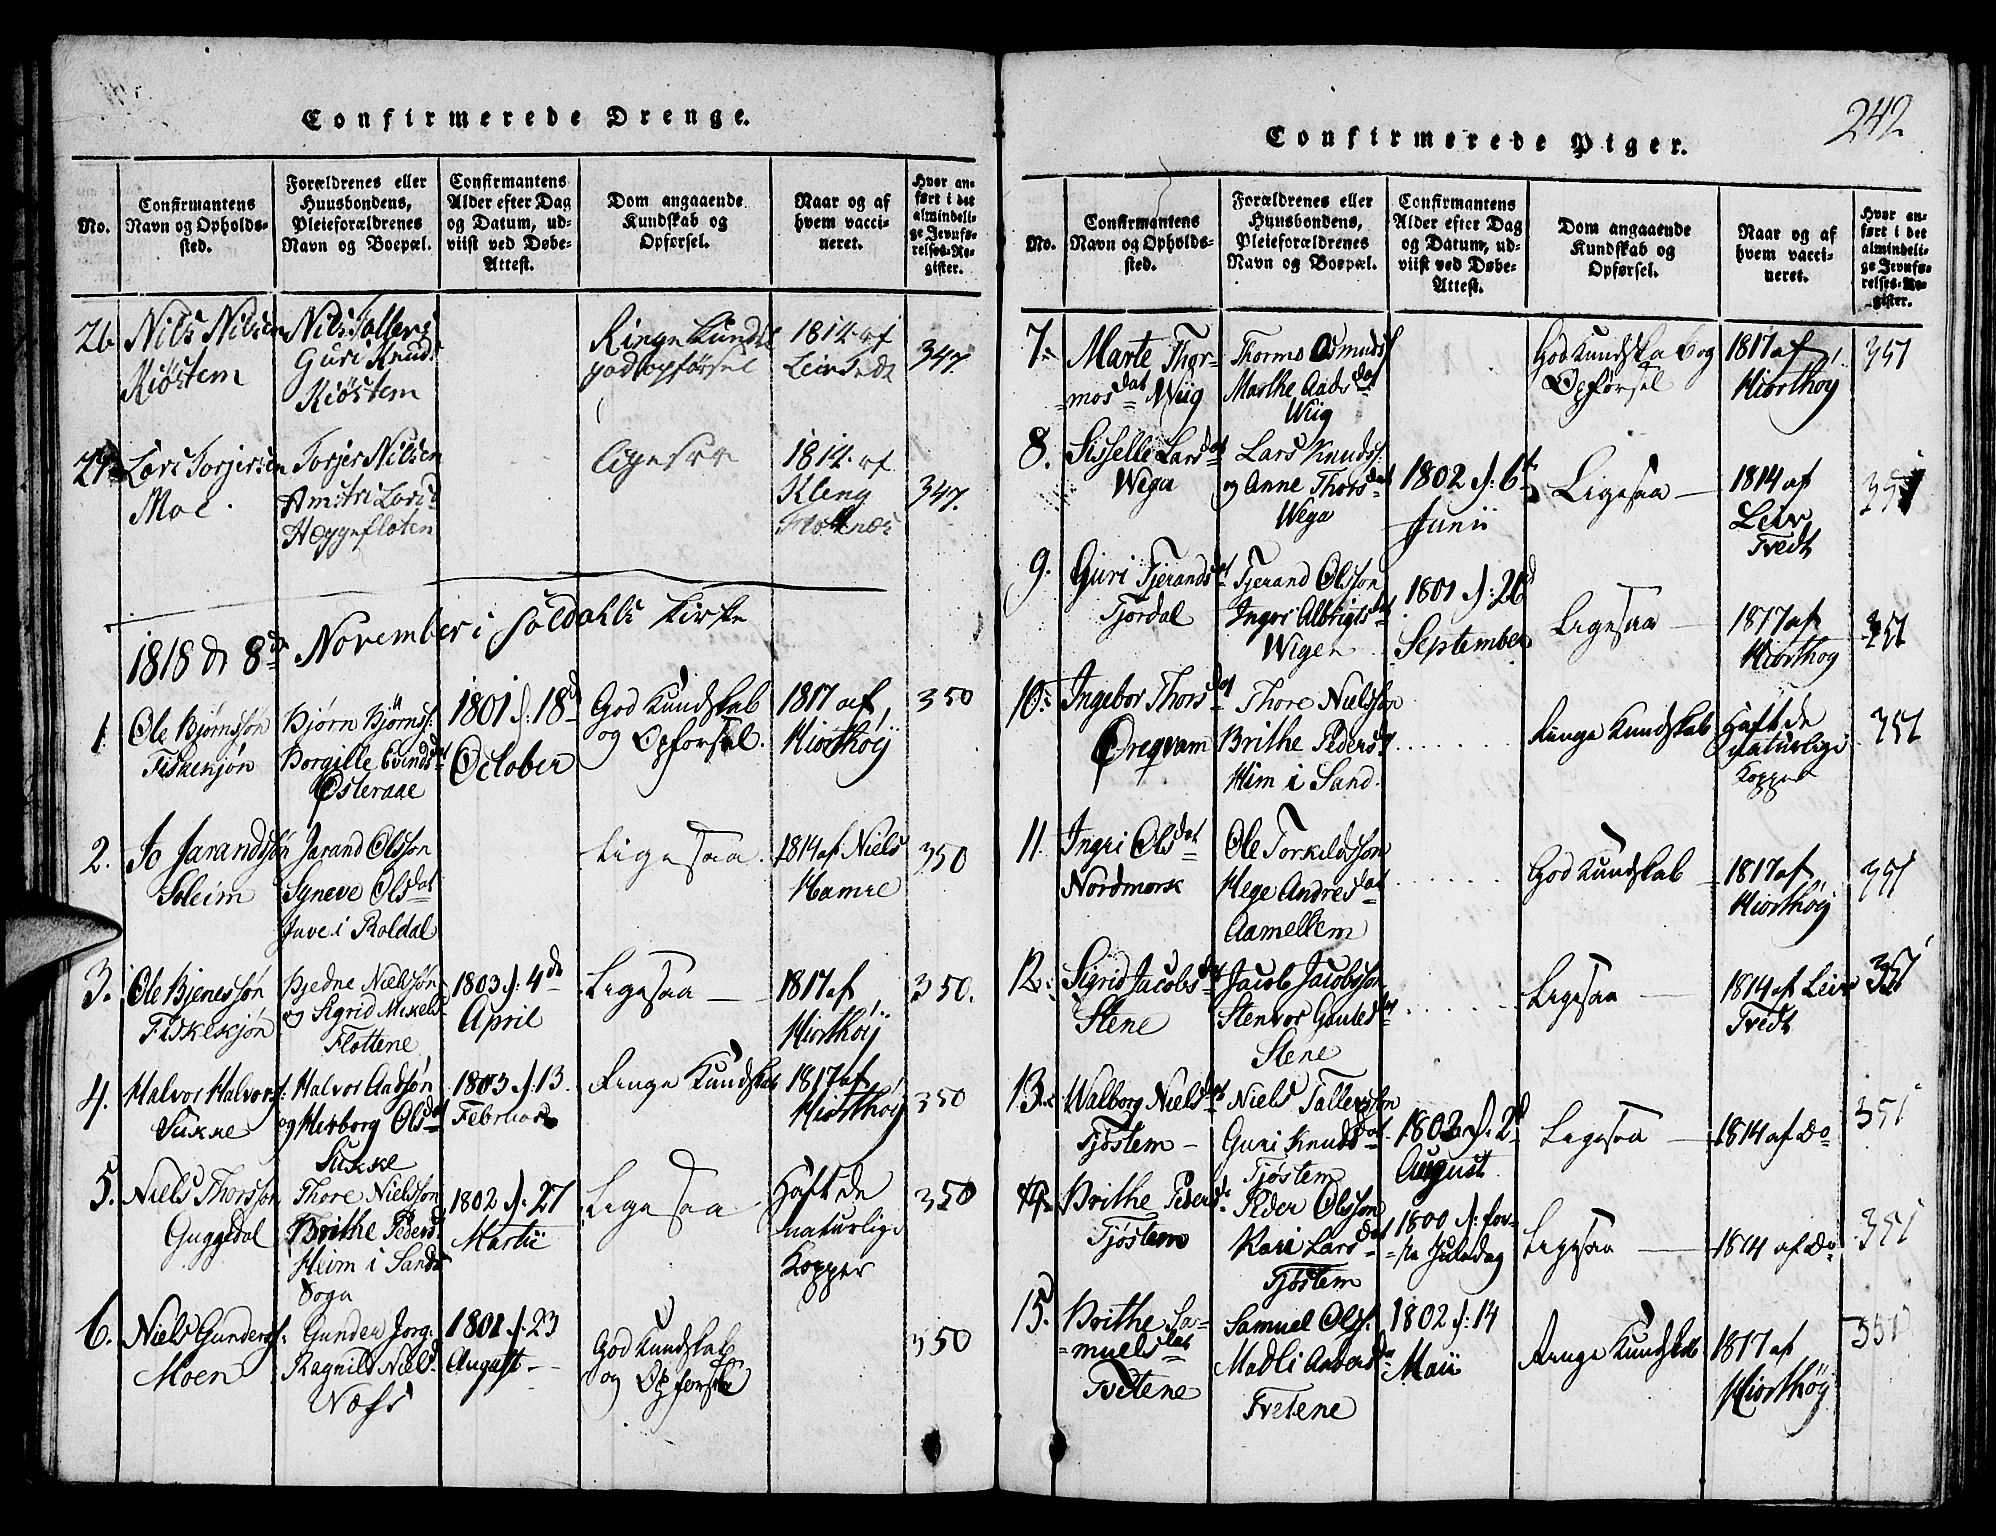 Confirmerede Drenge.
No.
Confirmantens
Navn og Opholds-
sted.
Forældrenes eller
Huusbondens,
Pleieforældrenes
Navn og Boepæl.
Confirmantens
Alder efter Dag
og Datum, ud-
viist ved Døbe-
Attest.
Dom angaaende
Kundskab og
Opførsel.
Naar og af
hvem vacci-
neret.
Hvor an-
ført i det
almindeli-
ge Jevnfø-
relses-Re-
gister.
26
Nils Nilsen
Kiöstem
Nils Tallevs
Guri Knuds
Kiöstem
Ringe Kunds
god opførsel
1814 af
Leir Tvedt
347.
27
Lars Torjersen
Moe.
Torjer Nilsen
Lars
Hæggefloten
ligesaa
1814 af
Kleng
347.
1818 d 8de November i Söldahls Kirke
1.
Ole Bjørnssøn
Fiskekjøn
Bjørn Bjørnss:
Borgille Evindsdat
Østeraae
1801 d: 18d
October
God Kundskab
og Opførsel.
1817 af
Hiorthøÿ
350
2.
Jo Jarandssøn
Soleim
Jarand Olsson
Syneve Olsdat
Juve i Roldal
Ligesaa.
1814 af Niels
Hamre
350
3.
Ole Bjenessøn
Fiskekjøn
Bjedne Nielssøn
og Sigrid Mikelsd
Flottene
1803 d: 4de
April
Ligesaa —
1817 af
Hiorthøÿ
350.
4.
Halvor Halvors:
Sukke
Halvor Aadsøn
og Herborg Olsdat
Sukke
1803 d: 13.
Februar
Ringe Kundskab
1817 af
Hiorthøÿ
350
5.
Niels Thorsson
Guggedal
Thore Nielsøn
Brithe Pedersd.
Heim i Sands
Sogn
1802 d: 27
Martii
Ligesaa
Haft de
naturlige
Kopper
350
6.
Niels Gunders:
Moen
Gunder Jorg:
Ragnild Nielsd.
Næss
1801 d: 23
August —
God Kundskab
og Opførsel
350
242
Confirmerede Piger.
No.
Confirmantens
Navn og Opholds-
sted.
Forældrenes eller
Huusbondens,
Pleieforældrenes
Navn og Boepæl.
Confirmantens
Alder efter Dag
og Datum, ud-
viist ved Døbe-
Attest.
Dom angaaende
Kundskab og
Opførsel.
Naar og af
hvem vacci-
neret.
Hvor an-
ført i det
almindeli-
ge Jevnfø-
relses-Re-
gister.
7.
Marte Thor-
mosdat Wiig
Thormo Osmunds
Marthe Aadsdat
Wiig
God Kundskab og
Opførsel
1817 af
Hiorthöÿ
351
8.
Sisselle Larsdat
Wega
Lars Knudss.
og Anne Thorsdat
Wega
1802 d: 6te
Junii
Ligesaa —
1814 af
Leir
Tvedt
351
9.
Guri Tjerandsdat
Tjordal
Tjerand Olsson
Inger Albrigtsdat
Wigen
1801 d: 26d
September
Ligesaa —
1817 af
Hiorthøÿ
351
10.
Ingebor Thorsdat
Øreqvam
Thore Nielsson
Brithe Peders
Him i Sand.
.......
Ringe Kundskab
Haft de
naturlige
Kopper
351
11.
Ingri Olsdat
Nordmork
Ole Torkildsson
Hege Andresdat
Aamellem
......
God Kundskab
1817 af
Hiorthøÿ
351
12.
Sigrid Jacobsdat
Stene
Jacob Jacobsson
Stenvor Gautesdat
Stene
......
Ligesaa —
1814 af Leir
Tvedt
351
13.
Walborg Nielsdat
Tjöstem —
Niels Tallevsson
Guri Knudsdat
Tjöstem
1802 d: 2d
August
Ligesaa —
1814 af do
351
14.
Brithe Pedersd.
Tjöstem
Peder Olsson
Kari Larsdat
Tjöstem
1800 d: for-
ste Juledag
Ligesaa —
1814 af do
351
15.
Brithe Sa-
muelsdat
Tvetene
Samuel Olss:
Madli
Tvetene
1802 d: 14
Maii
Ringe Kundskab
1817 af
Hiorthøÿ
351